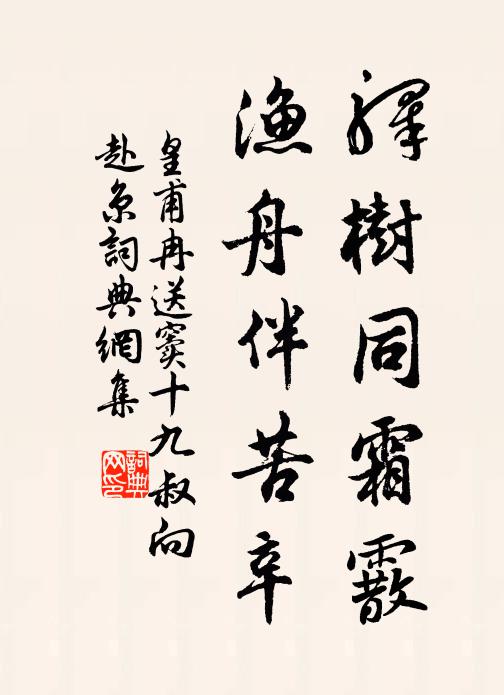 驛樹同霜霰
漁舟伴苦辛
皇甫冉送窦十九叔向
赴京詞典網集
詞典
网印